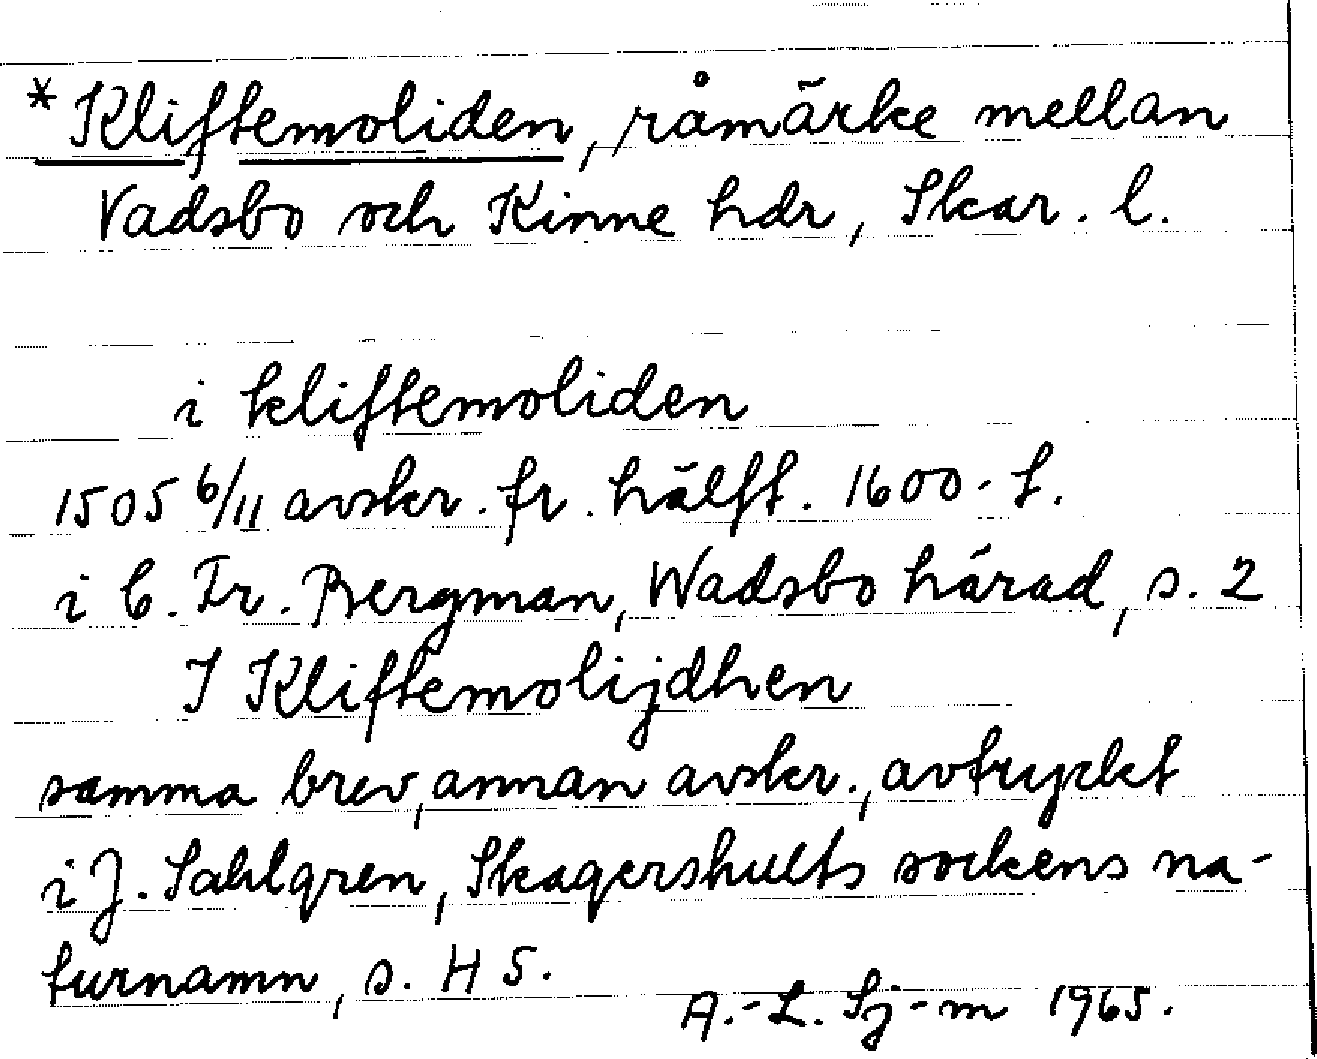 *Kliftemoliden, råmärke mellan
Vadsbo och Kinne hdr, Skar. l.
i kliftemoliden
1505 6/11 avskr. fr. hälft. 1600-t.
i C. Fr. Bergman, Wadsbo härad, s. 2
I Kliftemolijdhen
samma brev, annan avskr., avtryckt
i J. Sahlgren, Skagershults sockens na-
turnamn, s. H 5.
A.-L. Sj-m 1965.